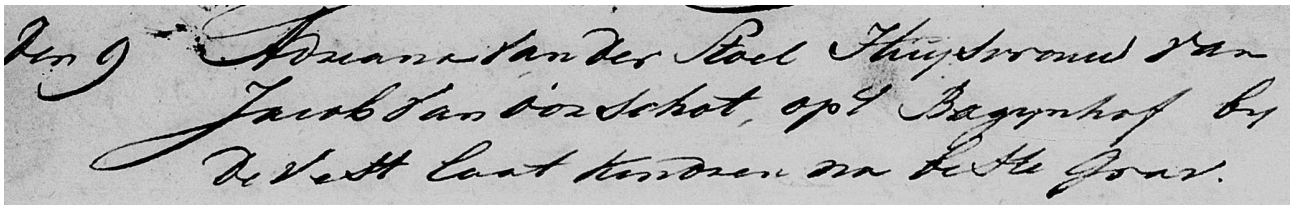 Den 9 Adriana van der Stoel Huysvrouw van
Jacob van oorschot, opt Bagynhof by
De Vest laat kindren na beste grav.